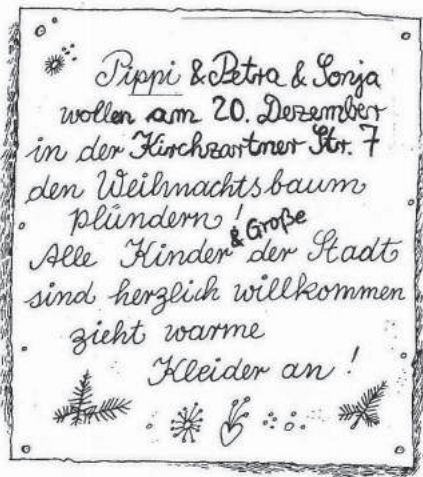 Pippi & Petra & Sonja
wollen am 20. Dezember
in der Kirchzartner Str. 7
den Weihnachtsbaum
plündern!
Alle Kinder & Große der Stadt
sind herzlich willkommen
zieht warme
Kleider an!